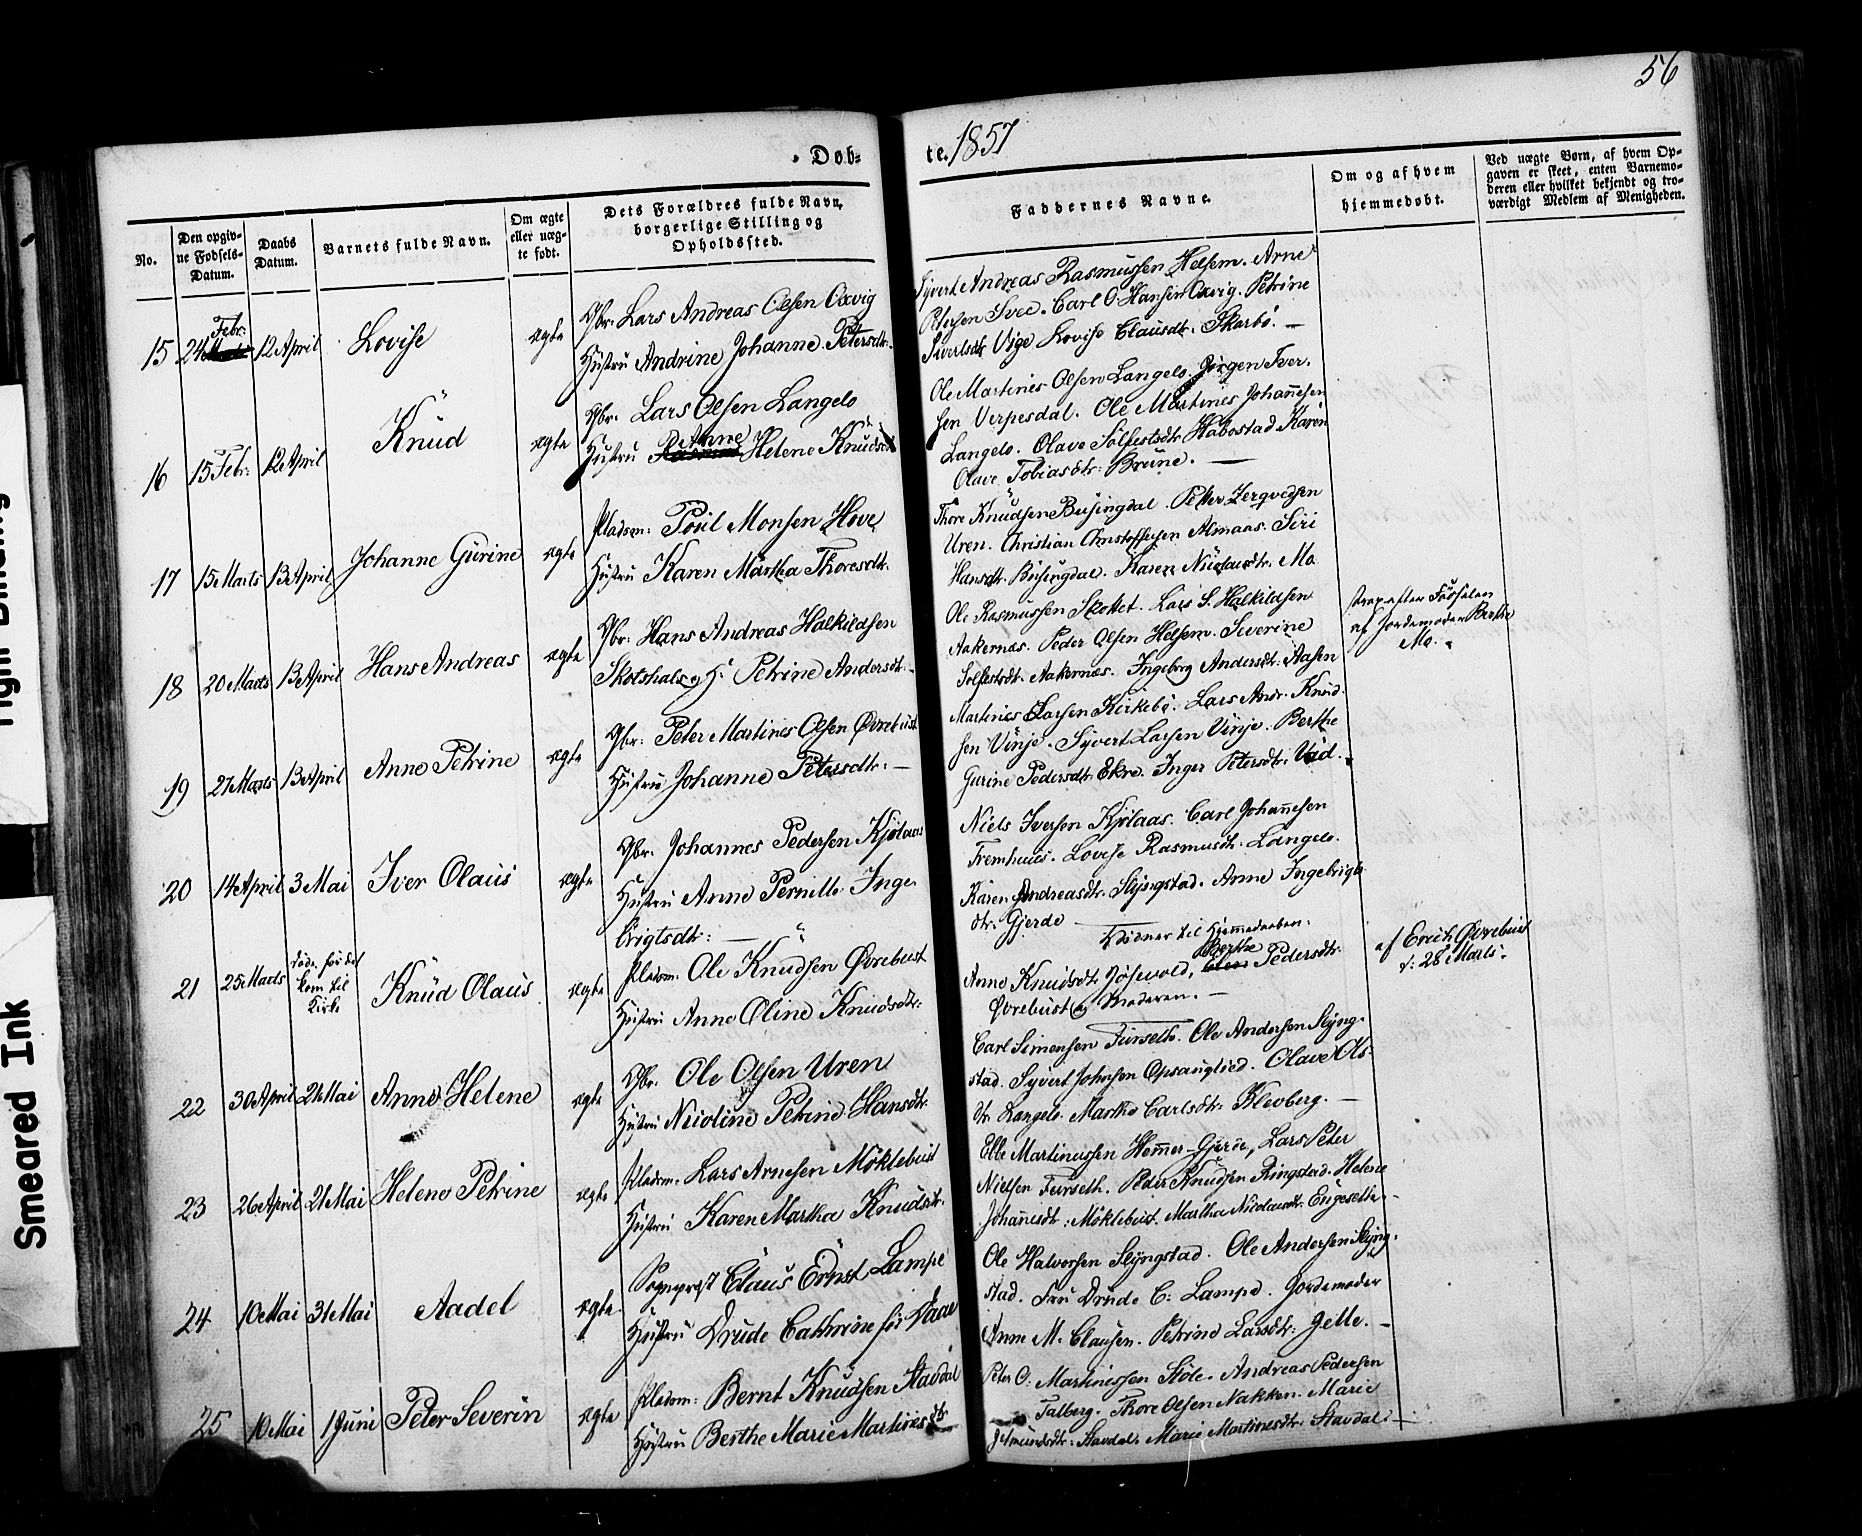 56
Døb-
te. 1857
No.
Den opgiv-
ne Fødsels-
Datum.
Daabs
Datum.
Barnets fulde Navn.
Om ægte
eller uæg-
te født.
Dets Forældres fulde Navn,
borgerlige Stilling og
Opholdssted.
Faddernes Navne.
Om og af hvem
hjemmedøbt.
Ved uægte Børn, af hvem Op-
gaven er skeet, enten Barnemo-
deren eller hvilket bekjendt og tro-
værdigt Medlem af Menigheden.
15 24 Febr: 12 April Lovise ægte
Gbr: Lars Andreas Olsen Oxvig
Hustru Andrine Johanne Petersdtr.
Syvert Andreas Rasmussen Helsem. Arne
Petersen Svee. Carl O. Hansen Oxvig. Petrine
Sivertsdtr Vige. Lovise Clausdtr. Skarbö. —
16 15 Febr: 12 April Knud ægte
Gbr: Lars Olsen Langelo
Hustru Anne Helene Knudsdtr
Ole Martines Olsen Langelo. Jörgen Iver-
sen Verpesdal. Ole Martines Johannesen
Langelo. Olave Solfestsdtr Habostad Karen
Olave Tobiasdtr: Brune. —
17 15 Marts 13 April Johanne Gurine ægte
Pladsm: Poul Monsen Hove
Hustru Karen Martha Thoresdtr.
Thore Knudsen Busingdal. Petter
Uren. Christian Christoffersen Almaas. Siri
Hansdtr. Busingdal. Karen Nicolausdtr. Mo
18 20 Marts 13 April Hans Andreas ægte
Gbr: Hans Andreas Halkildsen
Skotshals og H. Petrine Andersdtr.
Ole Rasmussen Skottet. Lars S. Halkildsen
Aakernæs. Peder Olsen Helsem. Severine
Solfestsdtr. Aakernæs. Ingeborg Andersdtr: Aasen
strax efter Födselen
af Jordemoder Berthe
Mo.
19 27 Marts 13 April Anne Petrine ægte
Gbr: Peter Martines Olsen Øvrebust
Hustru Johanne Petersdtr: —
Martines Larsen Kirkebö. Lars Andr. Knud-
sen Vinje. Syvert Larsen Vinje. Berthe
Gurine Pedersdtr. Ekre. Inger Petersdtr.
20 14 April 3 Mai Iver Olaus ægte
Gbr. Johannes Pedersen Kjölaas
Hustru Anne Pernille Inge-
brigtsdtr: —
Niels Iversen Kjölaas. Carl Johannesen
Fremhuus. Lovise Rasmusdtr. Langelo.
Karen Andreasdtr. Slyngstad. Anne Ingebrigts-
dtr. Gjerde
21 25 Marts döde för det
kom til
Kirke
Knud Olaus ægte
Pladsm: Ole Knudsen Øvrebust
Hustru Anne Oline Knudsdtr:
Vidner til Hjemmedaaben:
Anne Knudsdtr. Berthe Pedersdtr.
Øvrebust og Moderen. —
af Erich Øvrebust
d: 28 Marts.
22 30 April 21 Mai Anne Helene ægte
Gbr. Ole Olsen Uren
Hustru Nicoline Petrine Hansdtr
Carl Simensen Furseth. Ole Andersen Slyng-
stad. Syvert Johnsen Opsanglied. Olave Ols-
dtr. Langelo. Marthe Carlsdtr. Klevberg. —
23 26 April 21 Mai Helene Petrine ægte
Pladsm: Lars Arnesen Möklebust
Hustru Karen Martha Knudsdtr.
Elle Martinussen Hemmer-Gjerde, Lars Peter
Nielsen Furseth. Peder Knudsen Ringstad. Helene
Johannesdtr: Möklebust. Martha Nicolausdtr. Engeseth
24 10 Mai 31 Mai Aadel ægte
Sogneprest Claus Ernst Lampe
Hustru Drude Cathrine för Vaar
Ole Halvorsen Slyngstad. Ole Andersen Slyng-
stad. Fru Drude C: Lampe. Jordemoder
Anne M. Clausen. Petrine Larsdtr: Gjelle. —
25 10 Mai 1 Juni Peter Severin ægte
Pladsm: Bernt Knudsen Stavdal
Hustru Berthe Marie Martinesdtr
Peter O: Martinessen Stöle. Andreas Pedersen
Talberg. Thore Olsen Nakken. Marie
Stavdal. Marie Martinesdtr: Stavdal. —
Tight Binding
Smeared Ink